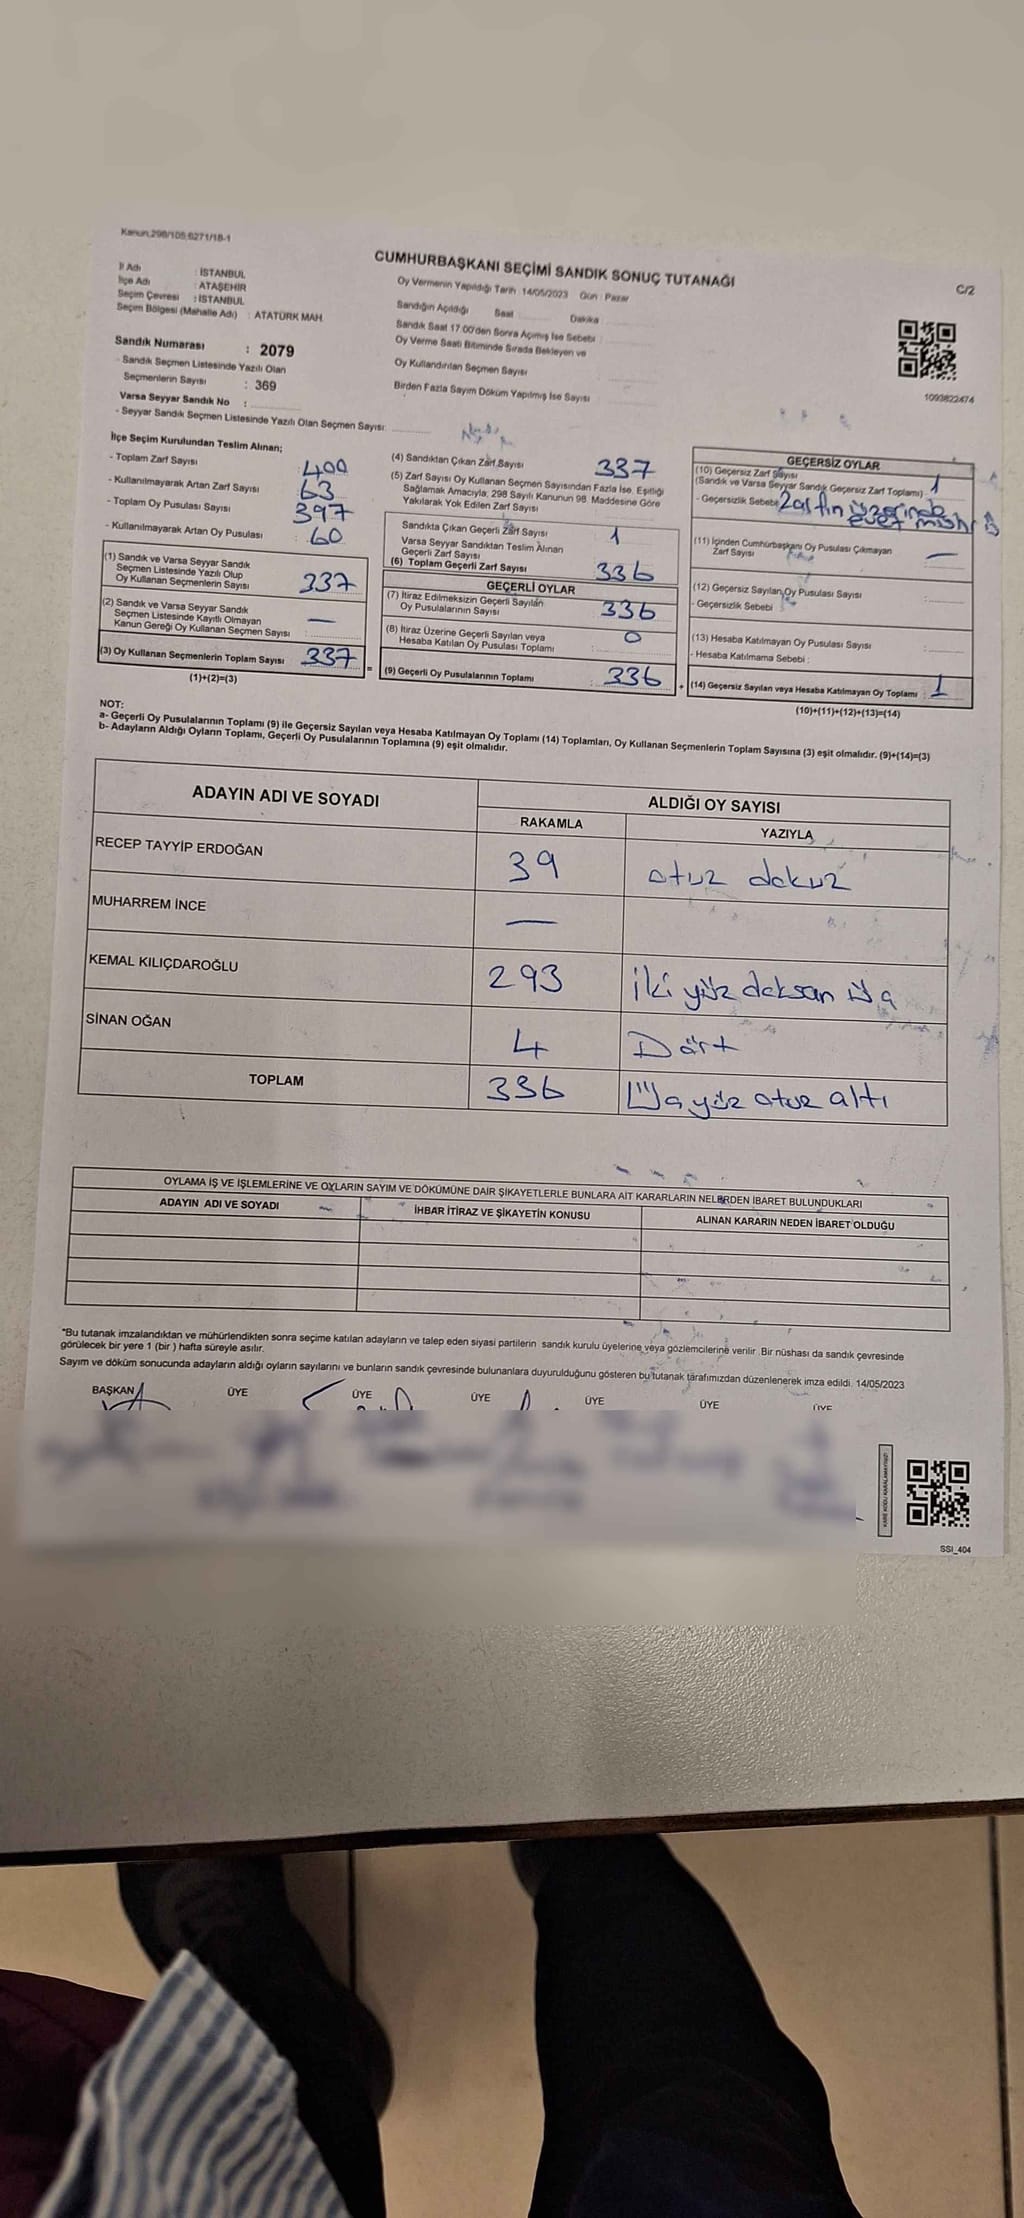 Kanun;298/105;6271/18-1
CUMHURBAŞKANI SEÇİMİ SANDIK SONUÇ TUTANAĞI
C/2
İl Adı : İSTANBUL
İlçe Adı : ATAŞEHİR
Seçim Çevresi : İSTANBUL
Seçim Bölgesi (Mahalle Adı) : ATATÜRK MAH.
Oy Vermenin Yapıldığı Tarih : 14/05/2023 Gün : Pazar
Sandığın Açıldığı Saat Dakika
Sandık Saat 17:00'den Sonra Açımış İse Sebebi :
Oy Verme Saati Bitiminde Sırada Bekleyen ve
Oy Kullandırılan Seçmen Sayısı
Birden Fazla Sayım Döküm Yapılmış İse Sayısı
1093822474
Sandık Numarası : 2079
- Sandık Seçmen Listesinde Yazılı Olan
Seçmenlerin Sayısı : 369
Varsa Seyyar Sandık No :
- Seyyar Sandık Seçmen Listesinde Yazılı Olan Seçmen Sayısı:
İlçe Seçim Kurulundan Teslim Alınan;
- Toplam Zarf Sayısı 400
- Kullanılmayarak Artan Zarf Sayısı 63
- Toplam Oy Pusulası Sayısı 397
- Kullanılmayarak Artan Oy Pusulası : 60
(1) Sandık ve Varsa Seyyar Sandık
Seçmen Listesinde Yazılı Olup
Oy Kullanan Seçmenlerin Sayısı 337
(2) Sandık ve Varsa Seyyar Sandık
Seçmen Listesinde Kayıtlı Olmayan
Kanun Gereği Oy Kullanan Seçmen Sayısı : —
(3) Oy Kullanan Seçmenlerin Toplam Sayısı 337
(1)+(2)=(3)
(4) Sandıktan Çıkan Zarf Sayısı 337
(5) Zarf Sayısı Oy Kullanan Seçmen Sayısından Fazla İse, Eşitliği
Sağlamak Amacıyla; 298 Sayılı Kanunun 98. Maddesine Göre
Yakılarak Yok Edilen Zarf Sayısı
Sandıkta Çıkan Geçerli Zarf Sayısı 1
Varsa Seyyar Sandıktan Teslim Alınan
Geçerli Zarf Sayısı
(6) Toplam Geçerli Zarf Sayısı 336
GEÇERLİ OYLAR
(7) İtiraz Edilmeksizin Geçerli Sayılan
Oy Pusulalarının Sayısı 336
(8) İtiraz Üzerine Geçerli Sayılan veya
Hesaba Katılan Oy Pusulası Toplamı : 0
= (9) Geçerli Oy Pusulalarının Toplamı : 336 +
GEÇERSİZ OYLAR
(10) Geçersiz Zarf Sayısı
(Sandık ve Varsa Seyyar Sandık Geçersiz Zarf Toplamı) : 1
- Geçersizlik Sebebi: Zarfın üzerinde
evet mührü
(11) İçinden Cumhurbaşkanı Oy Pusulası Çıkmayan
Zarf Sayısı —
(12) Geçersiz Sayılan Oy Pusulası Sayısı :
- Geçersizlik Sebebi
(13) Hesaba Katılmayan Oy Pusulası Sayısı :
- Hesaba Katılmama Sebebi :
(14) Geçersiz Sayılan veya Hesaba Katılmayan Oy Toplamı : 1
(10)+(11)+(12)+(13)=(14)
NOT:
a- Geçerli Oy Pusulalarının Toplamı (9) ile Geçersiz Sayılan veya Hesaba Katılmayan Oy Toplamı (14) Toplamları, Oy Kullanan Seçmenlerin Toplam Sayısına (3) eşit olmalıdır. (9)+(14)=(3)
b- Adayların Aldığı Oyların Toplamı, Geçerli Oy Pusulalarının Toplamına (9) eşit olmalıdır.
ADAYIN ADI VE SOYADI ALDIĞI OY SAYISI
RAKAMLA YAZIYLA
RECEP TAYYİP ERDOĞAN 39 otuz dokuz
MUHARREM İNCE —
KEMAL KILIÇDAROĞLU 293 iki yüz doksan üç
SİNAN OĞAN 4 Dört
TOPLAM 336 Üç yüz otuz altı
OYLAMA İŞ VE İŞLEMLERİNE VE OYLARIN SAYIM VE DÖKÜMÜNE DAİR ŞİKAYETLERLE BUNLARA AİT KARARLARIN NELERDEN İBARET BULUNDUKLARI
ADAYIN ADI VE SOYADI İHBAR İTİRAZ VE ŞİKAYETİN KONUSU ALINAN KARARIN NEDEN İBARET OLDUĞU
*Bu tutanak imzalandıktan ve mühürlendikten sonra seçime katılan adayların ve talep eden siyasi partilerin sandık kurulu üyelerine veya gözlemcilerine verilir. Bir nüshası da sandık çevresinde
görülecek bir yere 1 (bir ) hafta süreyle asılır.
Sayım ve döküm sonucunda adayların aldığı oyların sayılarını ve bunların sandık çevresinde bulunanlara duyurulduğunu gösteren bu tutanak tarafımızdan düzenlenerek imza edildi. 14/05/2023
BAŞKAN ÜYE ÜYE ÜYE ÜYE ÜYE ÜYE
KARE KODU KARALAMAYINIZ!
SSI_404